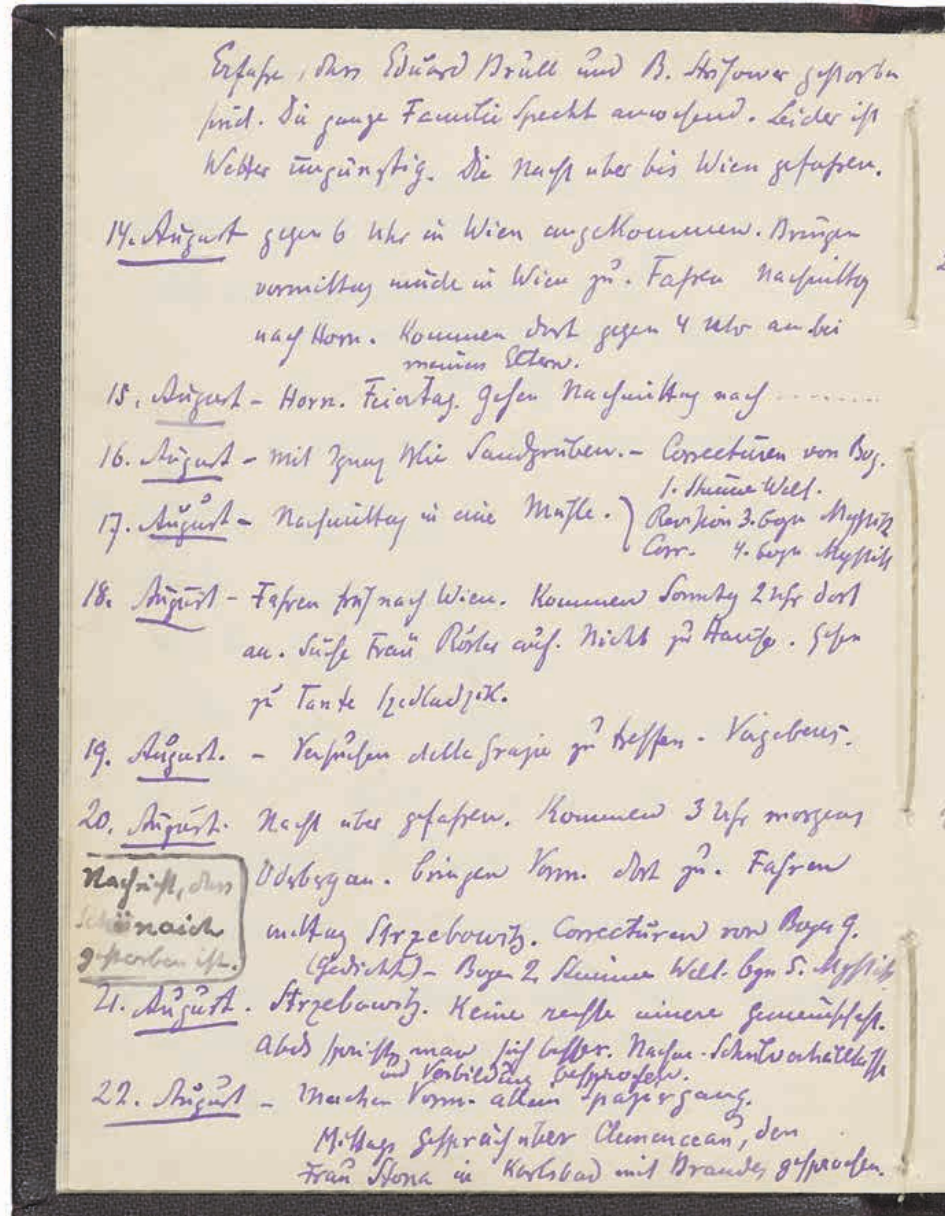 Erfahre, dass Eduard Brüll und B. gestorben
sind. Die ganze Familie Specht anwesend. Leider ist
Wetter ungünstig. Die Nacht über bis Wien gefahren.
14. August gegen 6 Uhr in Wien angekommen. Bringen
vormittag müde in Wien zu. Fahren Nachmittag
nach Horn. Kommen dort gegen 4 Uhr an bei
meinen Eltern.
15. August – Horn. Feiertag. Gehen Nachmittag nach .........
16. August – mit Sandgruben. – Correcturen von Bog.
1. Stumme Welt.
17. August – Nachmittag in eine Mühle. } Revision 3. Bogen Mystik
Corr. 4. Bogen Mystik
18. August – Fahren früh nach Wien. Kommen Sonntag 2 Uhr dort
an. Suche Frau Rösler auf. Nicht zu Hause. Gehen
zu Tante
19. August. – Versuchen delle Grazie zu treffen – Vergebens.
20. August. Nacht über gefahren. Kommen 3 Uhr morgens
Oderberg an. Bringen Vorm. dort zu. Fahren
mittag Strzebowitz. Correcturen von Bogen 9.
(Gedicht) – Bogen 2 Stumme Welt. Bgn 5. Mystik
Nachricht, dass
Schönaich
gestorben ist.
21. August. Strzebowitz. Keine rechte innere Gemeinschaft.
Abds spricht man sich besser. Schulverhältnisse
und Vorbildung gesprochen.
22. August – Machen Vorm. allein Spaziergang.
Mittags Gespräch über Clemenceau, den
Frau Stona in Karlsbad mit Brandes gesprochen.